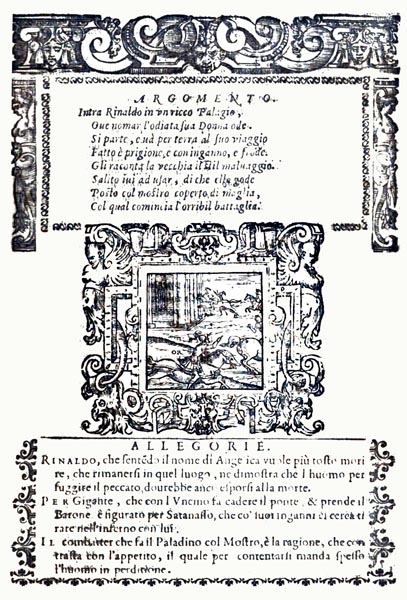 ARGOMENTO.
Intra Rinaldo in vn ricco Palagio,
Oue nomar l'odiata sua Donna ode.
Si parte, e uà per terra al suo viaggio
Fatto è prigione, e con inganno, e frode.
Gli racconta la vecchia il stil maluaggio
Salito iui ad usar, di che ella gode
Posto col mostro coperto di maglia,
Col qual comincia l'orribil battaglia.
ALLEGORIE.
RINALDO, che sentẽdo il nome di Angelica vuole più tosto mori
re, che rimanersi in quel luogo, ne dimostra che l'huomo per
fuggire il peccato, dourebbe anco esporsi alla morte.
PER Gigante, che con l'Vncino fa cadere il ponte, & prende il
Barone è figurato per Satanasso, che co' suoi inganni ci cerca ti
rare nell'inferno con lui.
IL combatter che fa il Paladino col Mostro, è la ragione, che con
trasta con l'appetito, il quale per contentarsi manda spesso
l'huomo in perditione.